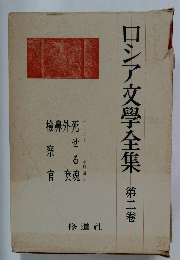 ロシア文學全集
第二卷
死せる魂
外套
鼻
檢察官
修道社